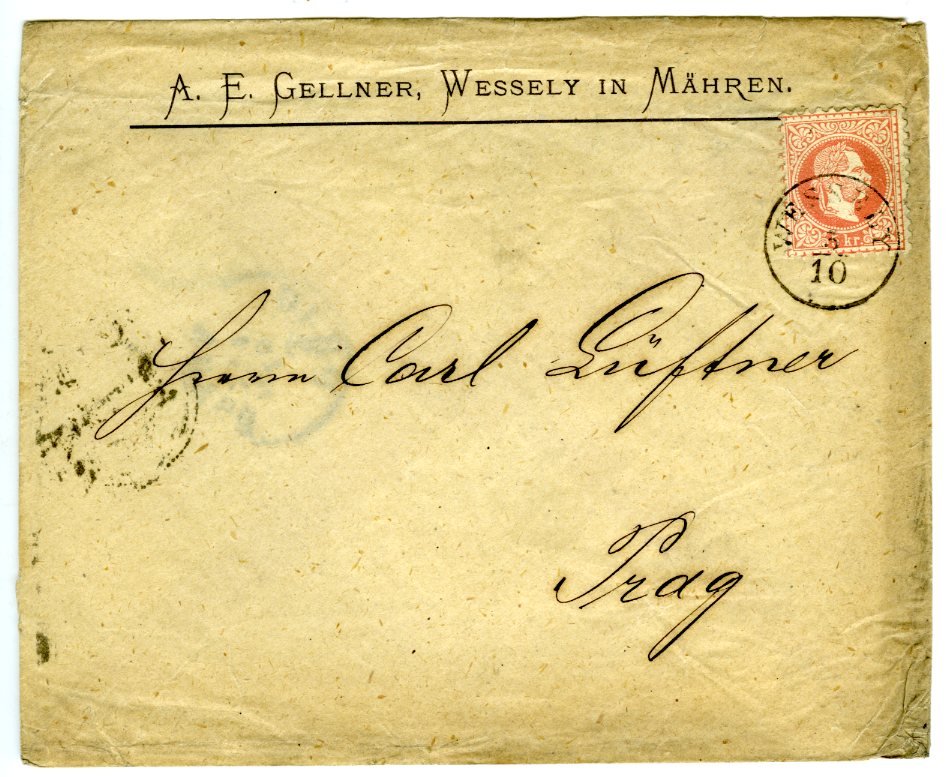 A. E. GELLNER, WESSELY IN MÄHREN.
kr.
5
10
Herrn Carl Lüftner
Prag